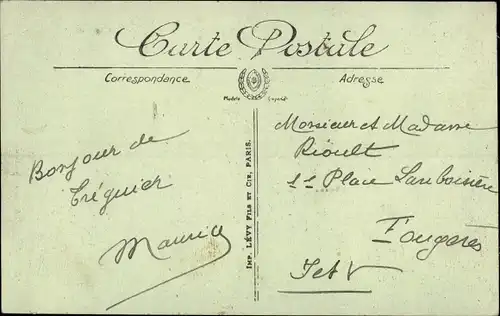 Carte Postale
Correspondance
Adresse
Modèle Déposé
Bonjour de
Tréguier
Maurice
IMP. LÉVY FILS ET CIE, PARIS.
Monsieur et Madame
Rioult
Place Lariboisière
Fougères
I et V